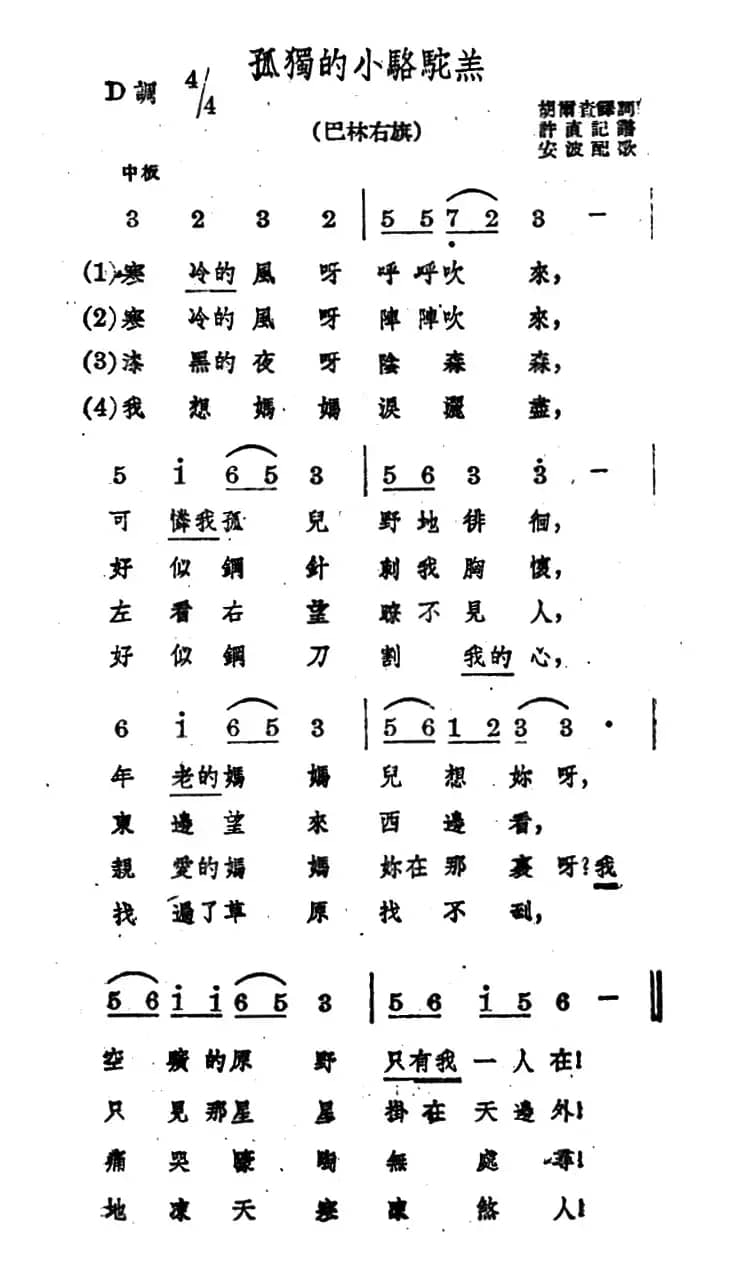 孤獨的小駱駝羔
D調 4/4
(巴林右旗)
胡爾查譯詞
許直記譜
安波配歌
中板
3 2 3 2 | 5 5 7 2 3 — |
(1)寒冷的風呀呼呼吹來,
(2)寒冷的風呀陣陣吹來,
(3)漆黑的夜呀陰森森,
(4)我想媽媽淚灑盡,
5 i 6 5 3 | 5 6 3 3 — |
可憐我孤兒野地徘徊,
好似鋼針刺我胸懷,
左看右望瞭不見人,
好似鋼刀割我的心,
6 i 6 5 3 | 5 6 1 2 3 3 · |
年老的媽媽兒想妳呀,
東邊望來西邊看,
親愛的媽媽妳在那裏呀?我
找過了草原找不到,
5 6 i i 6 5 3 | 5 6 i 5 6 — ‖
空曠的原野只有我一人在!
只見那星星掛在天邊外!
痛哭嚎啕無處尋!
地凍天寒凍煞人!